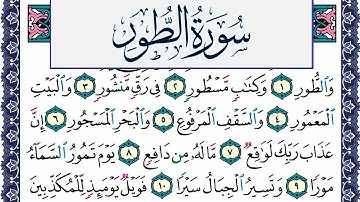 سُورَةُ الطُّورِ
وَالطُّورِ ١ وَكِتَابٍ مَّسْطُورٍ ٢ فِي رَقٍّ مَّنشُورٍ ٣ وَالْبَيْتِ
الْمَعْمُورِ ٤ وَالسَّقْفِ الْمَرْفُوعِ ٥ وَالْبَحْرِ الْمَسْجُورِ ٦ إِنَّ
عَذَابَ رَبِّكَ لَوَاقِعٌ ٧ مَّا لَهُ مِن دَافِعٍ ٨ يَوْمَ تَمُورُ السَّمَاءُ
مَوْرًا ٩ وَتَسِيرُ الْجِبَالُ سَيْرًا ١٠ فَوَيْلٌ يَوْمَئِذٍ لِّلْمُكَذِّبِينَ